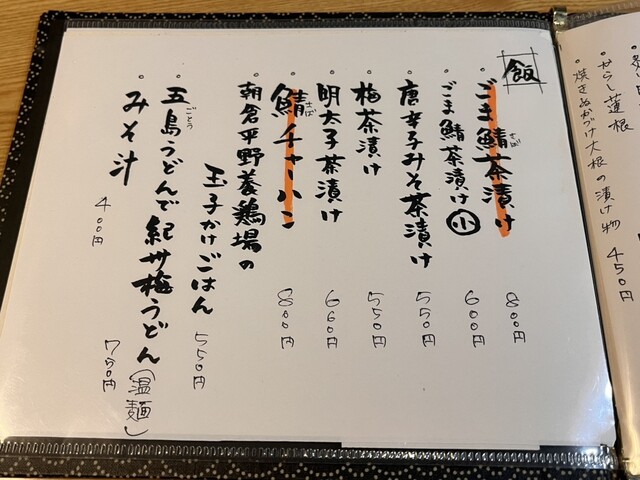 飯
。ごま鯖茶漬け 800円
さば
。ごま鯖茶漬け小 600円
。唐辛子みそ茶漬け 550円
。梅茶漬け 550円
。明太子茶漬け 660円
。鯖チャーハン 800円
さば
。朝倉平野養鶏場の
玉子かけごはん 550円
。五島うどんで紀州梅うどん(温麺) 780円
ごとう
。みそ汁 400円
。からし蓮根
。焼きぬかづけ大根の漬け物 450円